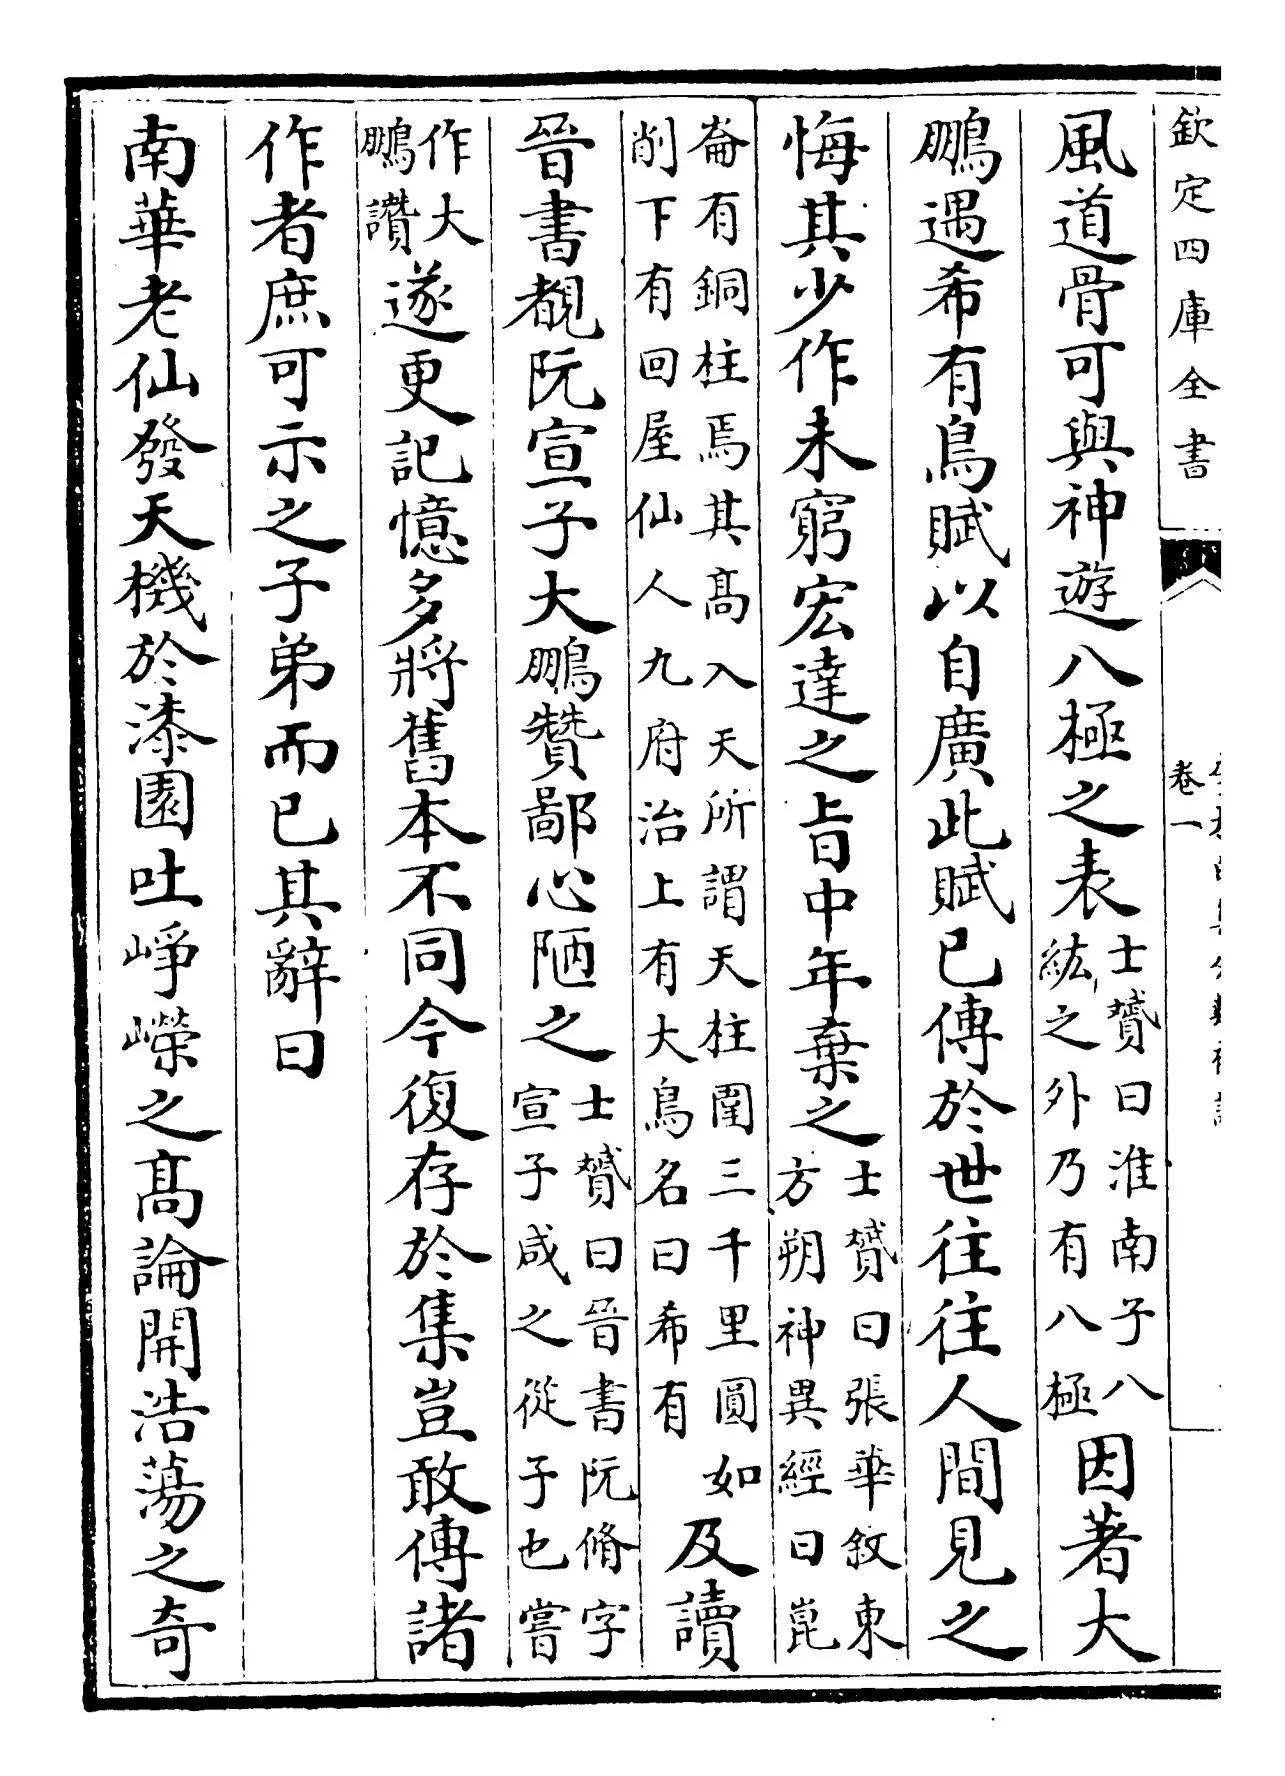 欽定四庫全書
卷一
風道骨可與神遊八極之表士贇曰淮南子八紘之外乃有八極因著大
鵬遇希有鳥賦以自廣此賦已傳於世往往人間見之
悔其少作未窮宏達之旨中年棄之士贇曰張華敘東方朔神異經曰崑
崙有銅柱焉其高入天所謂天柱圍三千里圓如削下有回屋仙人九府治上有大鳥名曰希有及讀
晉書覩阮宣子大鵬贊鄙心陋之士贇曰晉書阮脩字宣子咸之從子也嘗
作大鵬讚遂更記憶多將舊本不同今復存於集豈敢傳諸
作者庶可示之子弟而已其辭曰
南華老仙發天機於漆園吐崢嶸之高論開浩蕩之奇